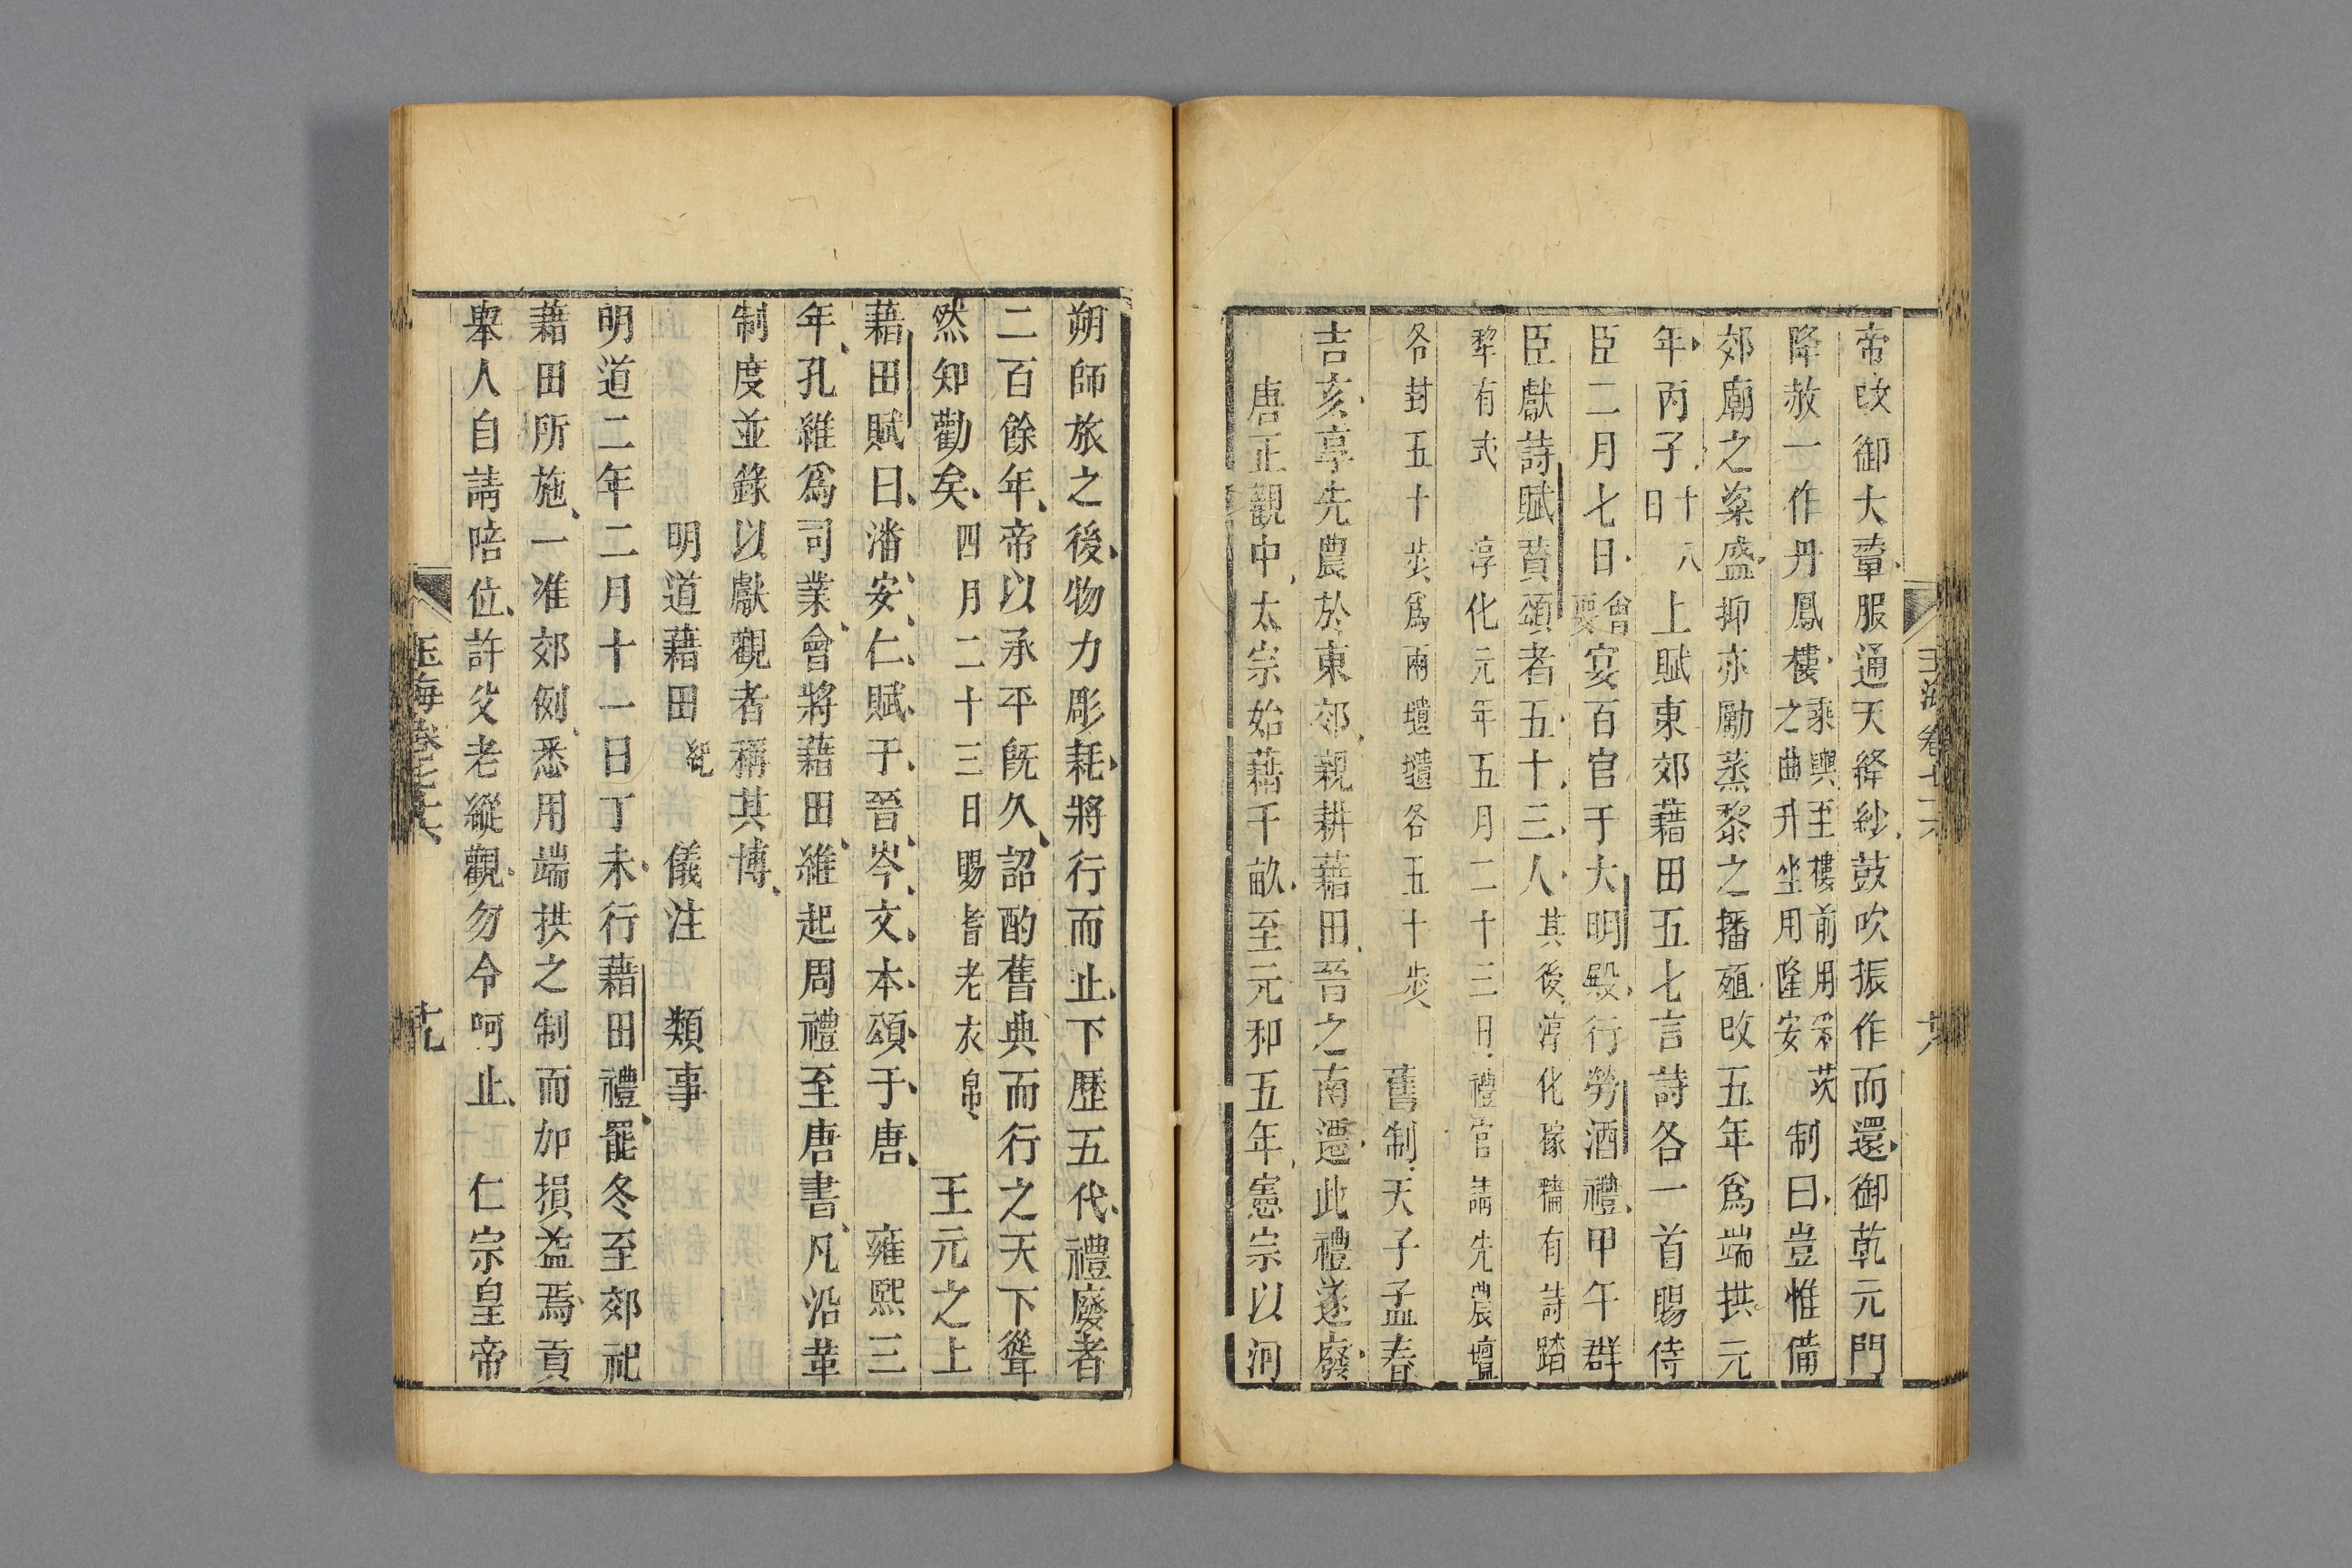 帝改御大輦服通天絳紗鼓吹振作而還御乾元門
降赦一作丹鳳樓乘輿至樓前用采茨之曲升坐用隆安制曰豈惟備
郊廟之粢盛抑亦勵蒸黎之播殖改五年爲端拱元
年丙子十八日上賦東郊藉田五七言詩各一首賜侍
臣二月七日會要宴百官于大明殿行勞酒禮甲午群
臣獻詩賦賁頌者五十三人其後淳化稼穡有詩踏
犂有式 淳化元年五月二十三日禮官請先農壇
各封五十步爲兩壝壝各五十步 舊制天子孟春
吉亥享先農於東郊親耕藉田晉之南遷此禮遂廢
唐正觀中太宗始藉千畝至元和五年憲宗以河
玉海卷七十六 十八
朔師旅之後物力彫耗將行而止下歷五代禮廢者
二百餘年帝以承平旣久詔酌舊典而行之天下聳
然知勸矣四月二十三日賜耆老衣帛 王元之上
藉田賦曰潘安仁賦于晉岑文本頌于唐 雍熙三
年孔維爲司業會將藉田維起周禮至唐書凡沿革
制度並錄以獻觀者稱其博
明道藉田記 儀注 類事
明道二年二月十一日丁未行藉田禮罷冬至郊祀
藉田所施一准郊例悉用端拱之制而加損益焉貢
舉人自請陪位許父老縱觀勿令呵止 仁宗皇帝
玉海卷七十六 十九